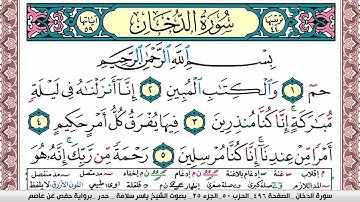 سُورَةُ الدُّخَانِ
بِسْمِ اللَّهِ الرَّحْمَٰنِ الرَّحِيمِ
حمٓ ١ وَالْكِتَابِ الْمُبِينِ ٢ إِنَّا أَنزَلْنَاهُ فِي لَيْلَةٍ
مُّبَارَكَةٍ إِنَّا كُنَّا مُنذِرِينَ ٣ فِيهَا يُفْرَقُ كُلُّ أَمْرٍ حَكِيمٍ ٤
أَمْرًا مِّنْ عِندِنَا إِنَّا كُنَّا مُرْسِلِينَ ٥ رَحْمَةً مِّن رَّبِّكَ إِنَّهُ هُوَ
سورة الدخان _ الصفحة ٤٩٦ _ الحزب ٥٠ _ الجزء ٢٥ _ بصوت الشيخ ياسر سلامة _ حدر _ برواية حفص عن عاصم